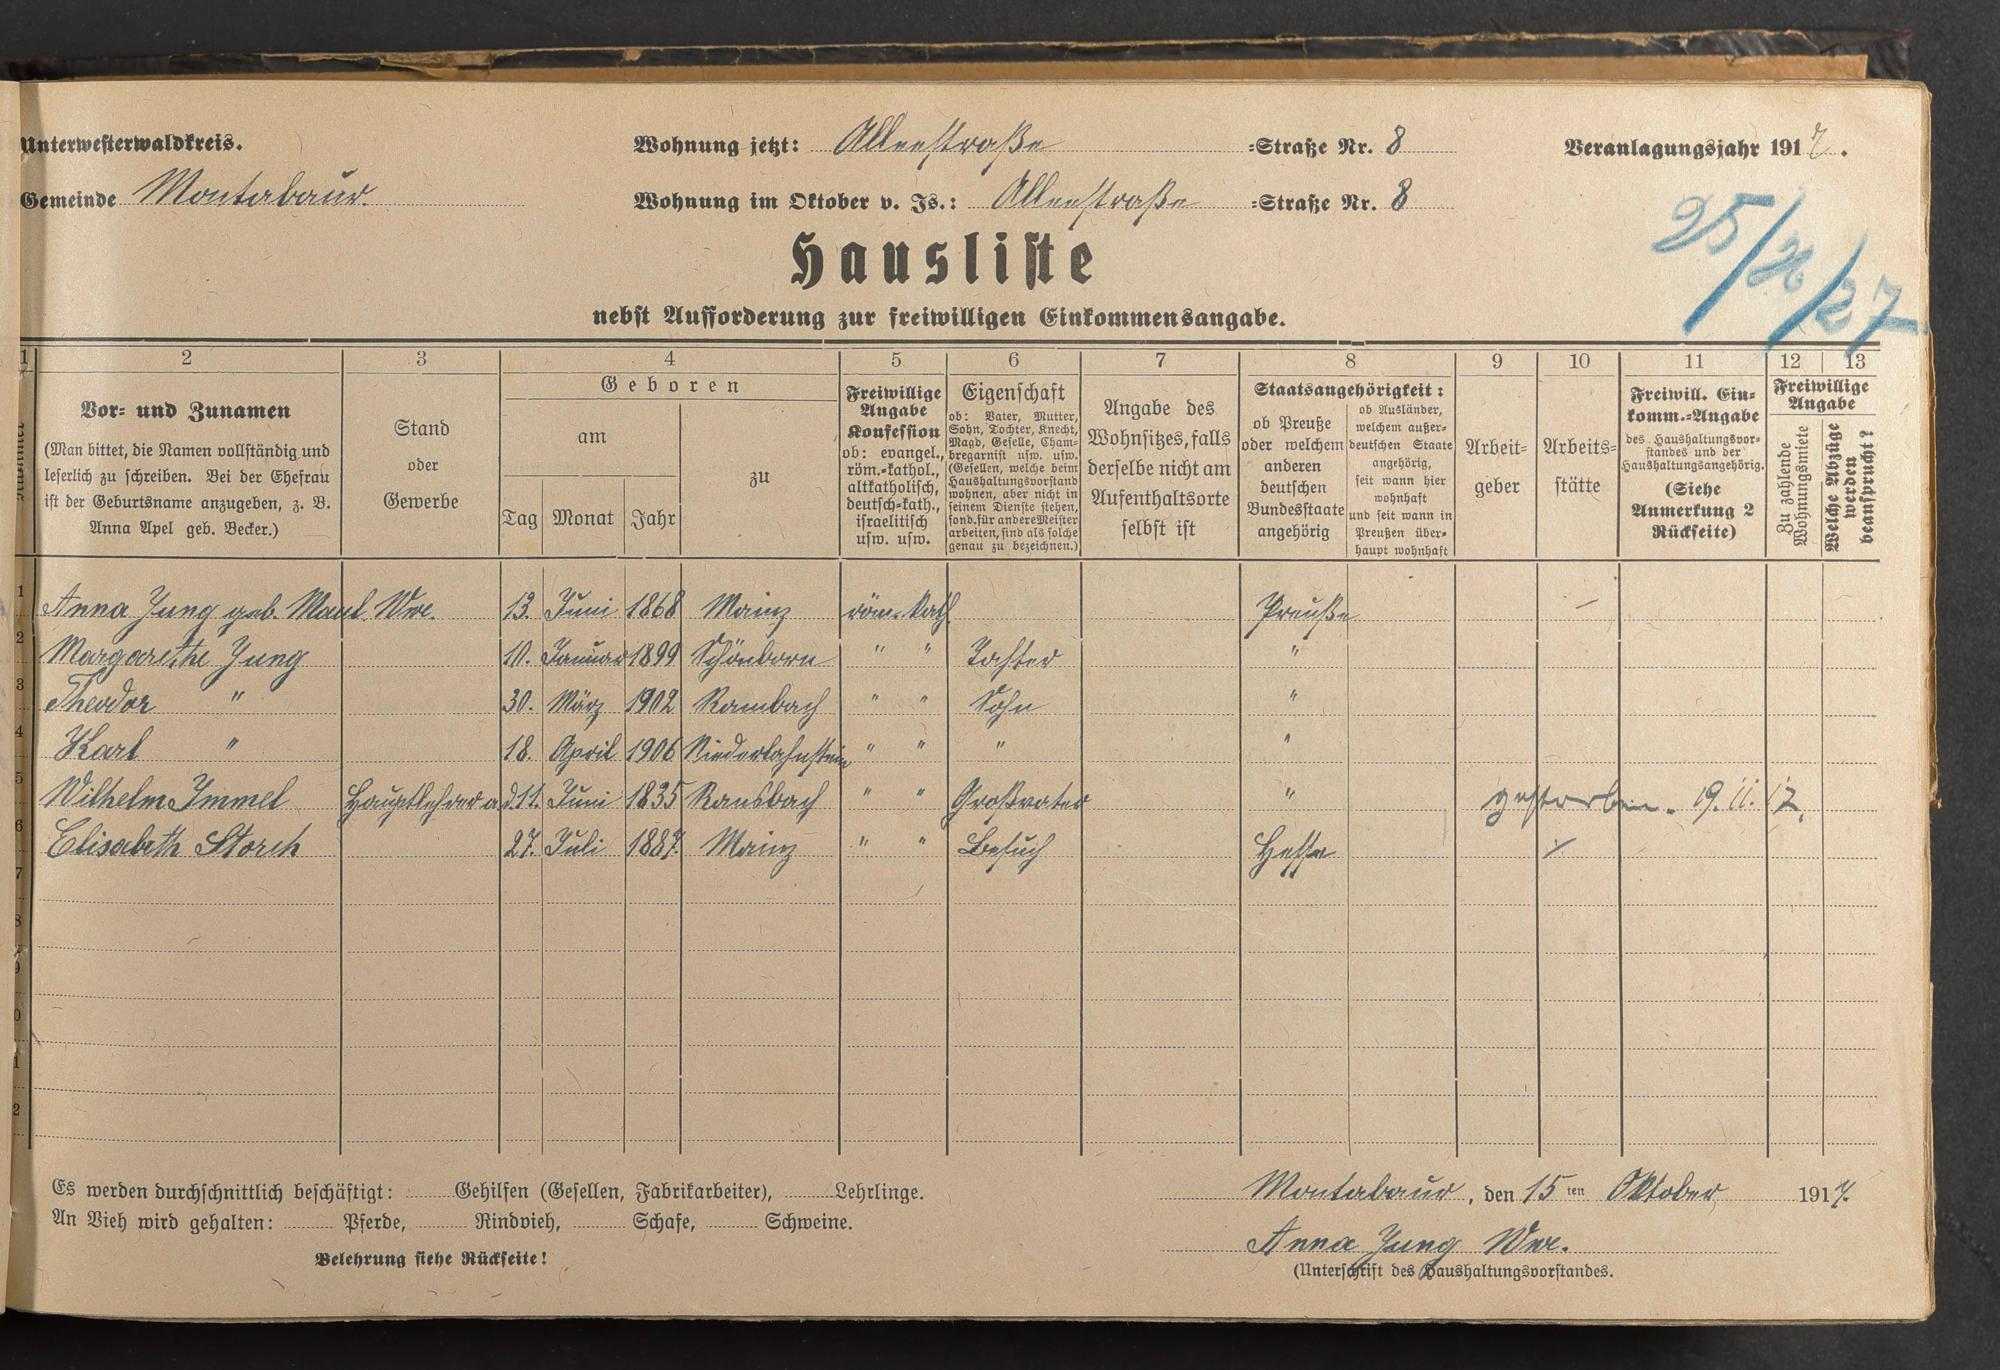 Unterwesterwaldkreis.
Wohnung jetzt: Alleestraße =Straße Nr. 8
Veranlagungsjahr 1917.
Gemeinde Montabaur.
Wohnung im Oktober v. Js.: Alleestraße =Straße Nr. 8
25/26/27
Hausliste
nebst Aufforderung zur freiwilligen Einkommensangabe.
1 2 3 4 5 6 7 8 9 10 11 12 13
Vor- und Zunamen
(Man bittet, die Namen vollständig und
leserlich zu schreiben. Bei der Ehefrau
ist der Geburtsname anzugeben, z. B.
Anna Apel geb. Becker.)
Stand
oder
Gewerbe
Geboren
am
Tag Monat Jahr
zu
Freiwillige
Angabe
Konfession
ob: evangel.,
röm.-kathol.,
altkatholisch,
deutsch-kath.,
israelitisch
usw. usw.
Eigenschaft
ob: Vater, Mutter,
Sohn, Tochter, Knecht,
Magd, Geselle, Cham-
bregarnist usw. usw.
(Gesellen, welche beim
Haushaltungsvorstand
wohnen, aber nicht in
seinem Dienste stehen,
sond. für andere Meister
arbeiten, sind als solche
genau zu bezeichnen.)
Angabe des
Wohnsitzes, falls
derselbe nicht am
Aufenthaltsorte
selbst ist
Staatsangehörigkeit:
ob Preuße
oder welchem
anderen
deutschen
Bundesstaate
angehörig
ob Ausländer,
welchem außer-
deutschen Staate
angehörig,
seit wann hier
wohnhaft
und seit wann in
Preußen über-
haupt wohnhaft
Arbeit-
geber
Arbeits-
stätte
Freiwill. Ein-
komm.-Angabe
des Haushaltungsvor-
standes und der
Haushaltungsangehörig.
(Siehe
Anmerkung 2
Rückseite)
Freiwillige
Angabe
Zu zahlende
Wohnungsmiete
Welche Abzüge
werden
beansprucht?
1 Anna Jung geb. Maul Wwe. 13. Juni 1868 Mainz röm.-kath. Preuße –
2 Margarethe Jung 10. Januar 1899 Schönborn " " Tochter "
3 Theodor " 30. März 1902 Rambach " " Sohn "
4 Karl " 18. April 1906 Niederlahnstein " " " "
5 Wilhelm Immel Hauptlehrer a. d. 11. Juni 1835 Ransbach " " Großvater " gestorben. 19.11.17.
6 Elisabeth Storch 27. Juli 1887. Mainz " " Besuch Hesse
7
8
9
0
1
2
Es werden durchschnittlich beschäftigt: Gehilfen (Gesellen, Fabrikarbeiter), Lehrlinge.
An Vieh wird gehalten: Pferde, Rindvieh, Schafe, Schweine.
Belehrung siehe Rückseite!
Montabaur, den 15ten Oktober 1917.
Anna Jung Wwe.
(Unterschrift des Haushaltungsvorstandes.